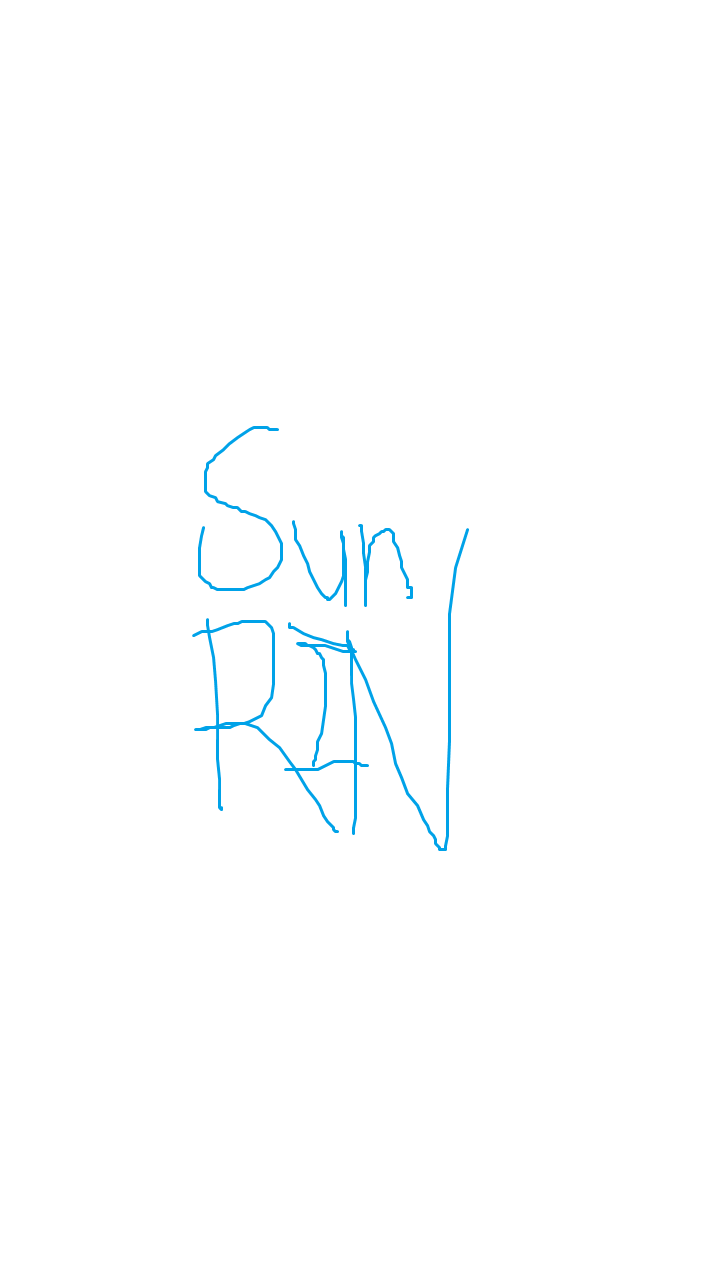 Sun
RIN